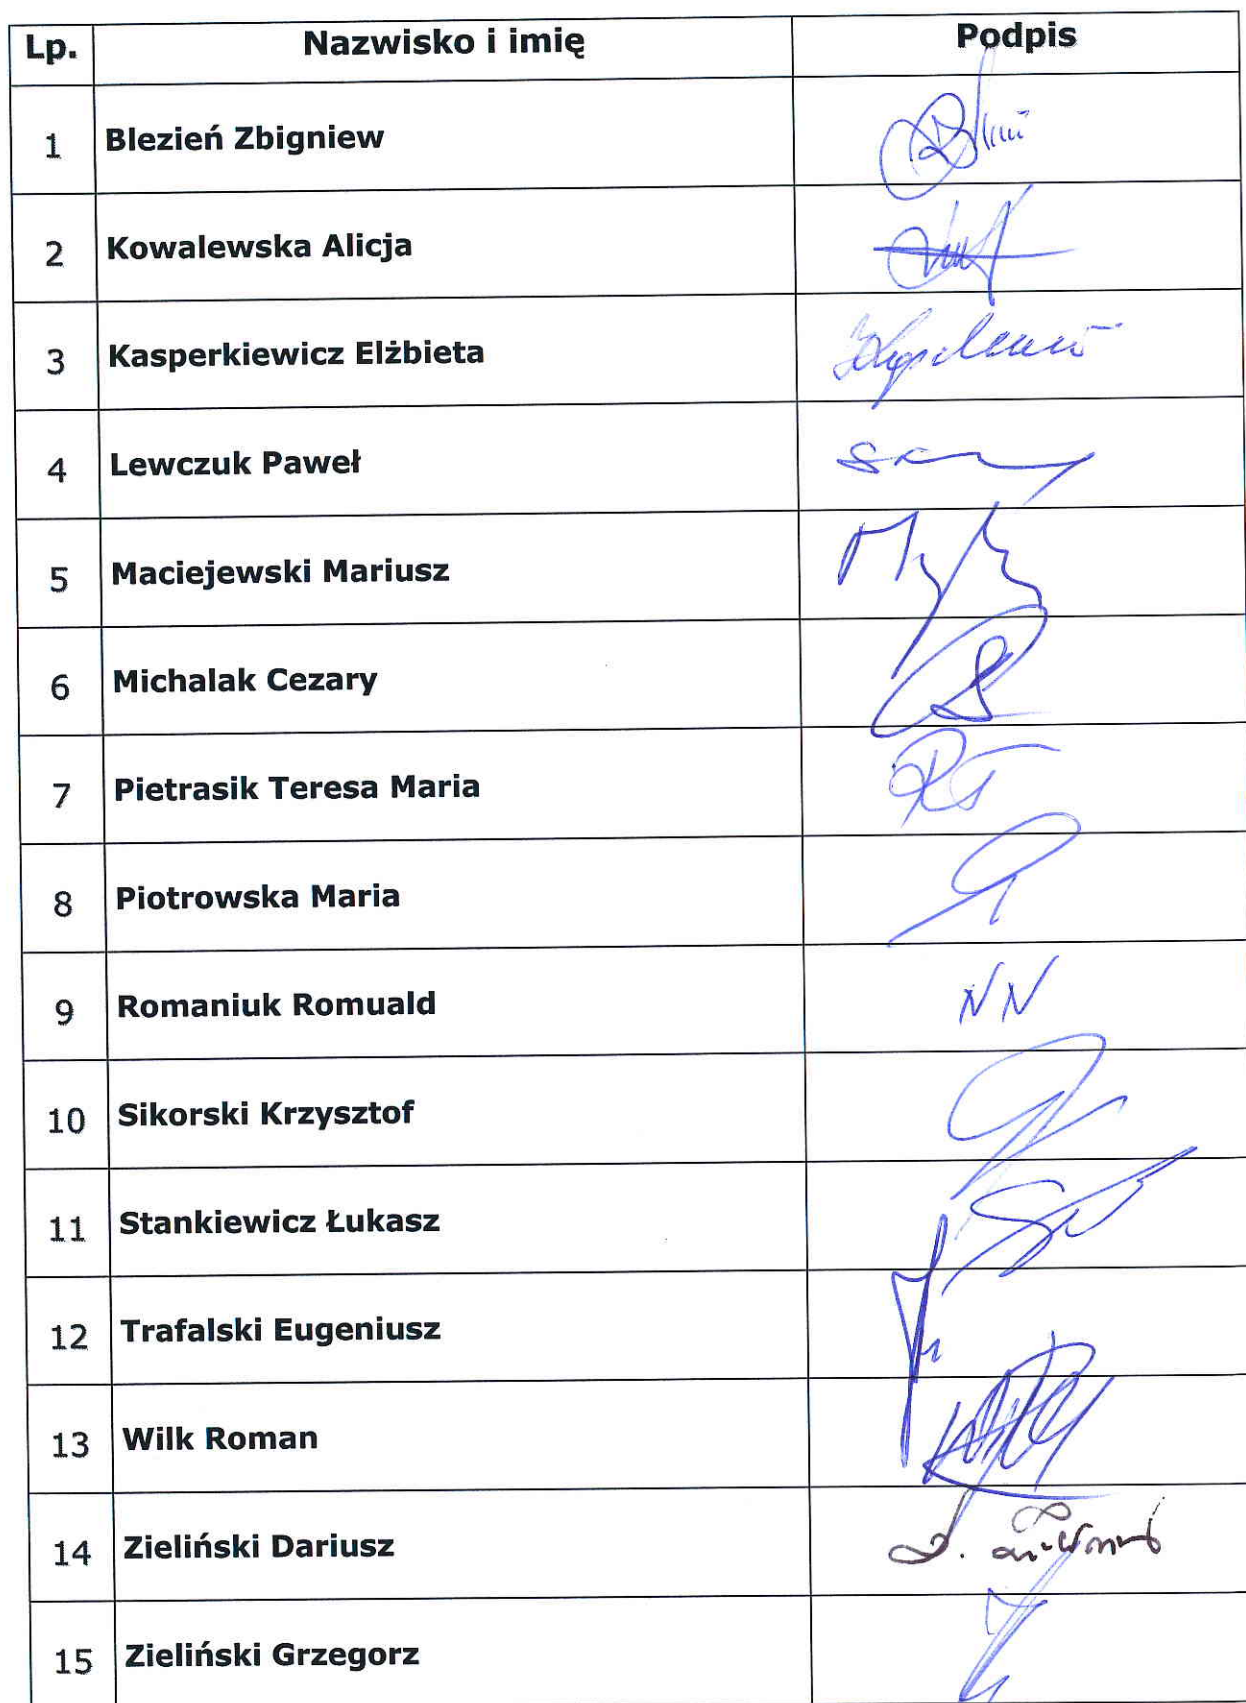 Lp. Nazwisko i imię Podpis
1 Blezień Zbigniew
2 Kowalewska Alicja
3 Kasperkiewicz Elżbieta
4 Lewczuk Paweł
5 Maciejewski Mariusz
6 Michalak Cezary
7 Pietrasik Teresa Maria
8 Piotrowska Maria
9 Romaniuk Romuald NN
10 Sikorski Krzysztof
11 Stankiewicz Łukasz
12 Trafalski Eugeniusz
13 Wilk Roman
14 Zieliński Dariusz
15 Zieliński Grzegorz